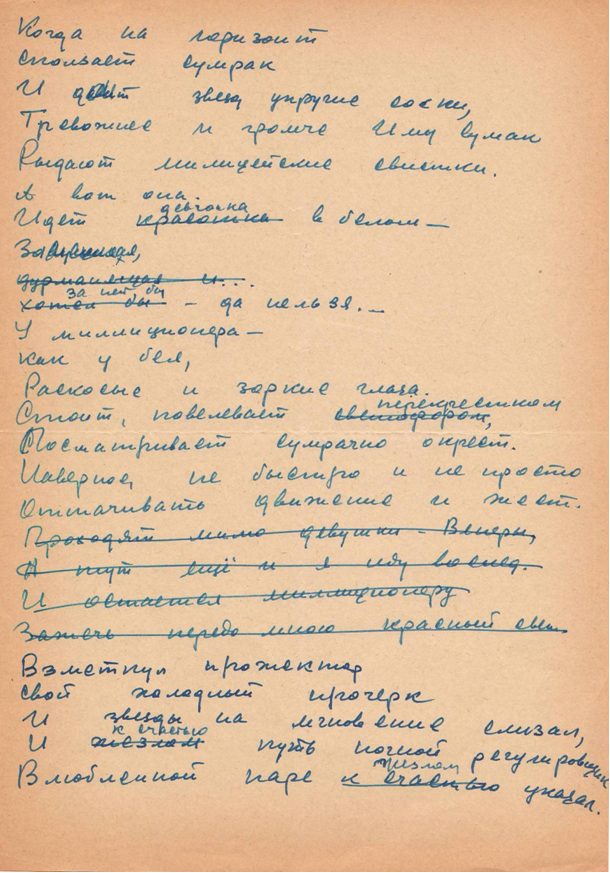 Когда на горизонт
сползает сумрак
И доит звезд упругие соски,
Тревожнее и громче
Рыдают милицейские свистки.
А вот она.
девчонка
Идет красотка в белом —
дурманящая и...
за ней бы
хотел бы — да нельзя...
У миллиционера —
как у бея,
Раскосые и зоркие глаза.
перекрестком
Стоит, повелевает светофором,
Посматривает сумрачно окрест.
Наверное, не быстро и не просто
Оттачивать движение и жест.
Проходят мимо девушки - Венеры,
А тут ещё и я иду вослед.
И остается миллиционеру
Зажечь передо мною красный свет
Взметнул прожектор
свой холодный прочерк
И звезды на мгновение слизал,
к счастью
И жезлом путь ночной регулировщик
жезлом
Влюбленной паре к счастью указал.